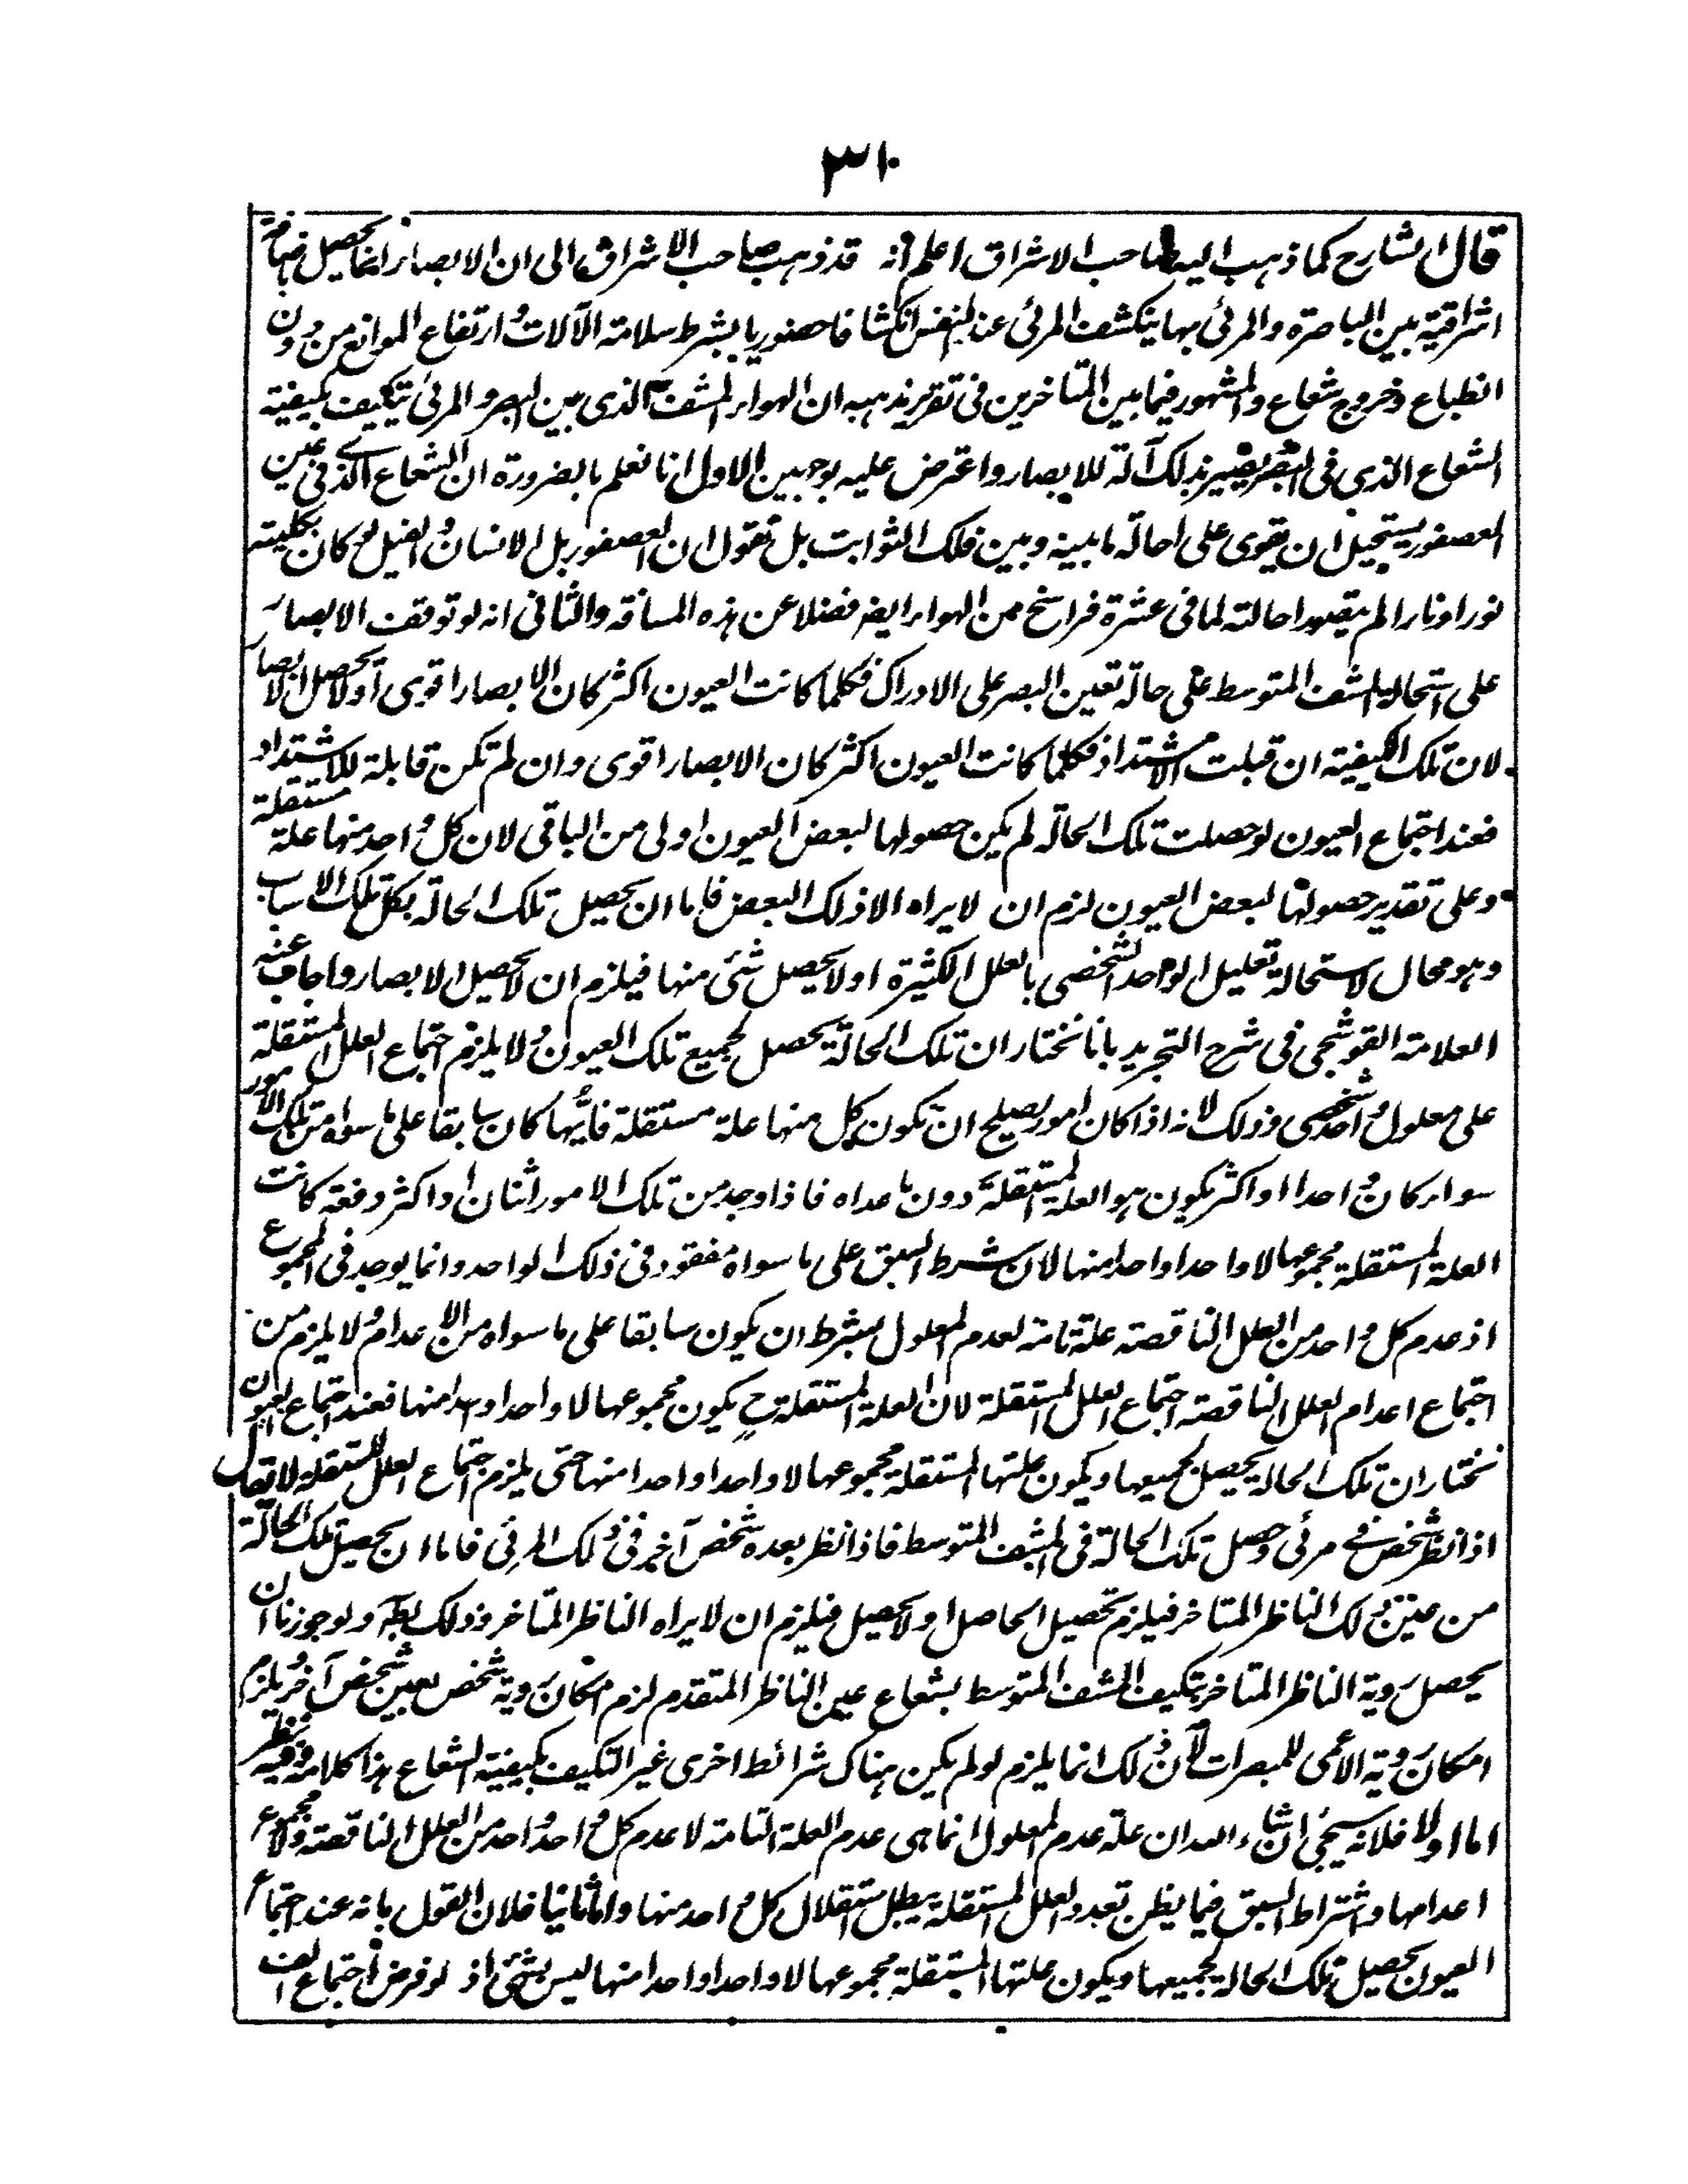 ٣١٠
قال الشارح كما ذهب اليه صاحب الاشراق اعلم انه قد ذهب صاحب الاشراق الى ان الابصار انما يحصل باضافة
اشراقية بين الباصرة والمرئي بها ينكشف المرئي عند النفس انكشافا حضوريا بشرط سلامة الآلات وارتفاع الموانع من دون
انطباع وخروج شعاع والمشهور فيما بين المتاخرين في تقرير مذهبه ان الهواء المشف الذي بين البصر والمرئي يتكيف بكيفية
الشعاع الذي في البصر يصير بذلك آلة للابصار واعترض عليه بوجهين الاول انا نعلم بالضرورة ان الشعاع الذي في عين
العصفور يستحيل ان يقوى على احالة ما بينه وبين فلك الثوابت بل نقول ان العصفور بل الانسان والفيل لو كان بكليته
نورا ونارا لم يتصور احالته لما في عشرة فراسخ من الهواء ايضا فضلا عن هذه المسافة والثاني انه لو توقف الابصار
على استحالة المشف المتوسط على حالة تعين البصر على الادراك فكلما كانت العيون اكثر كان الابصار اقوى او لا يحصل الابصار
لان تلك الكيفية ان قبلت الاشتداد فكلما كانت العيون اكثر كان الابصار اقوى وان لم تكن قابلة للاشتداد
فعند اجتماع العيون لو حصلت تلك الحالة لم يكن حصولها لبعض العيون اولى من الباقي لان كل واحد منها علة مستقلة
وعلى تقدير حصولها لبعض العيون لزم ان لا يراه الا ذلك البعض فاما ان يحصل تلك الحالة بكل تلك الاسباب
وهو محال لاستحالة تعليل الواحد الشخصي بالعلل الكثيرة او لا يحصل شئي منها فيلزم ان لا يحصل الابصار واجاب عنه
العلامة القوشجي في شرح التجريد بانا نختار ان تلك الحالة تحصل لجميع تلك العيون ولا يلزم اجتماع العلل المستقلة
على معلول واحد شخصي وذلك لانه اذا كان امور يصلح ان تكون كل منها علة مستقلة فايها كان سابقا على ما سواه من تلك الامور
سواء كان واحدا او اكثر يكون هو العلة المستقلة دون ما عداه فاذا وجد من تلك الامور اثنان او اكثر دفعة كانت
العلة المستقلة مجموعها لا واحدا واحدا منها لان شرط السبق على ما سواه مفقود في ذلك الواحد وانما يوجد في المجموع
اذ عدم كل واحد من العلل الناقصة علة تامة لعدم المعلول بشرط ان يكون سابقا على ما سواه من الاعدام ولا يلزم من
اجتماع اعدام العلل الناقصة اجتماع العلل المستقلة لان العلة المستقلة ح يكون مجموعها لا واحدا واحدا منها فعند اجتماع العيون
نختار ان تلك الحالة يحصل لجميعها ويكون علتها المستقلة مجموعها لا واحدا واحدا منها حتى يلزم اجتماع العلل المستقلة لا يقال
اذا نظر شخص في مرئي وحصل تلك الحالة في المشف المتوسط فاذا نظر بعده شخص آخر في ذلك المرئي فاما ان يحصل تلك الحالة
من عين ذلك الناظر المتاخر فيلزم تحصيل الحاصل او لا يحصل فيلزم ان لا يراه الناظر المتاخر وذلك بط ولو جوزنا ان
يحصل روية الناظر المتاخر بتكيف المشف المتوسط بشعاع عين الناظر المتقدم لزم امكان روية شخص بعين شخص آخر ويلزم
امكان روية الاعمى للمبصرات لان ذلك انما يلزم لو لم يكن هناك شرائط اخرى غير التكيف بكيفية الشعاع هذا كلامه وفيه نظر
اما اولا فلانه سيجئ ان شاء الله ان علة عدم المعلول انما هي عدم العلة التامة لا عدم كل واحد واحد من العلل الناقصة ولا مجموع
اعدامها واشتراط السبق فيما يظن تعدد العلل المستقلة يبطل استقلال كل واحد منها واما ثانيا فلان القول بانه عند اجتماع
العيون يحصل تلك الحالة لجميعها ويكون علتها المستقلة مجموعها لا واحدا واحدا منها ليس بشئي اذ لو فرض اجتماع الف